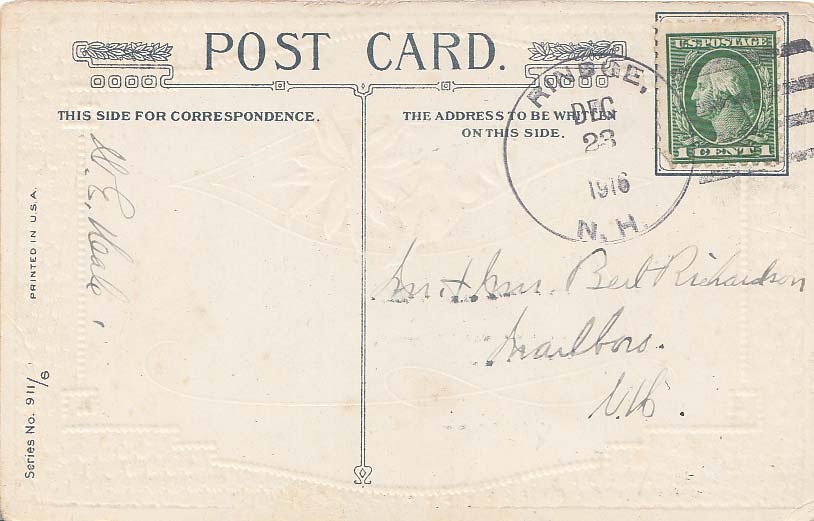 POST CARD.
THIS SIDE FOR CORRESPONDENCE.
THE ADDRESS TO BE WRITTEN
ON THIS SIDE.
RINDGE,
DEC
23
1916
N.H.
U.S. POSTAGE
1 CENT 1
Mr. & Mrs. Bert Richardson
Marlboro.
N.H.
PRINTED IN U.S.A.
Series No. 911/6